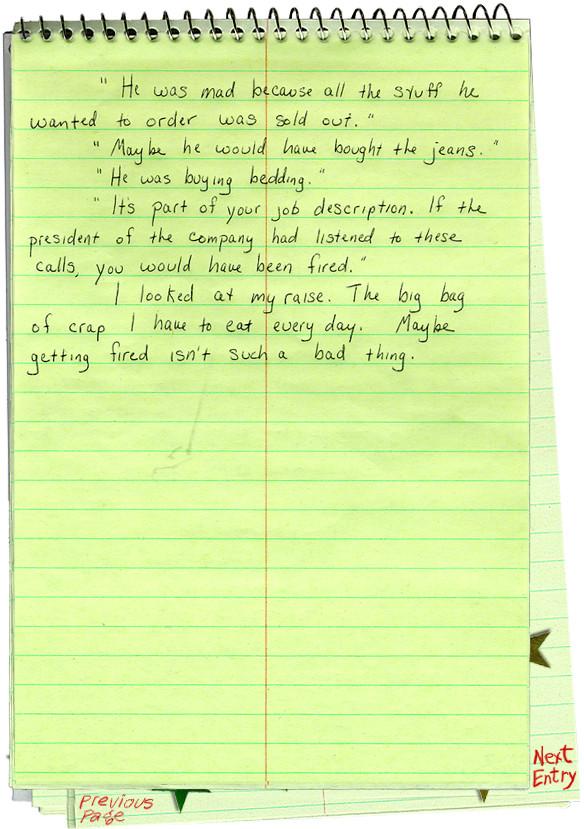 " He was mad because all the stuff he
wanted to order was sold out. "
" Maybe he would have bought the jeans. "
" He was buying bedding. "
" It's part of your job description. If the
president of the company had listened to these
calls, you would have been fired. "
I looked at my raise. The big bag
of crap I have to eat every day. Maybe
getting fired isn't such a bad thing.
Next
Entry
Previous
Page